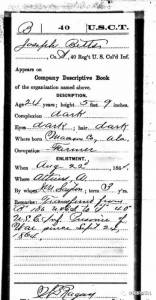 B 40 U.S.C.T.
Joseph
Co. A, 40 Reg't U. S. Col'd Inf.
Appears on
Company Descriptive Book
of the organization named above.
DESCRIPTION.
Age 24 years; height 5 feet 9 inches.
Complexion dark
Eyes dark; hair dark
Where born Macon Co, Ala.
Occupation Farmer
ENLISTMENT.
When Aug 22, 1864.
Where Athens, A
By term 3 y'rs.
Remarks: Transferred from
U.S.C. Inf. Prisoner of
War since Sept 24,
1864.